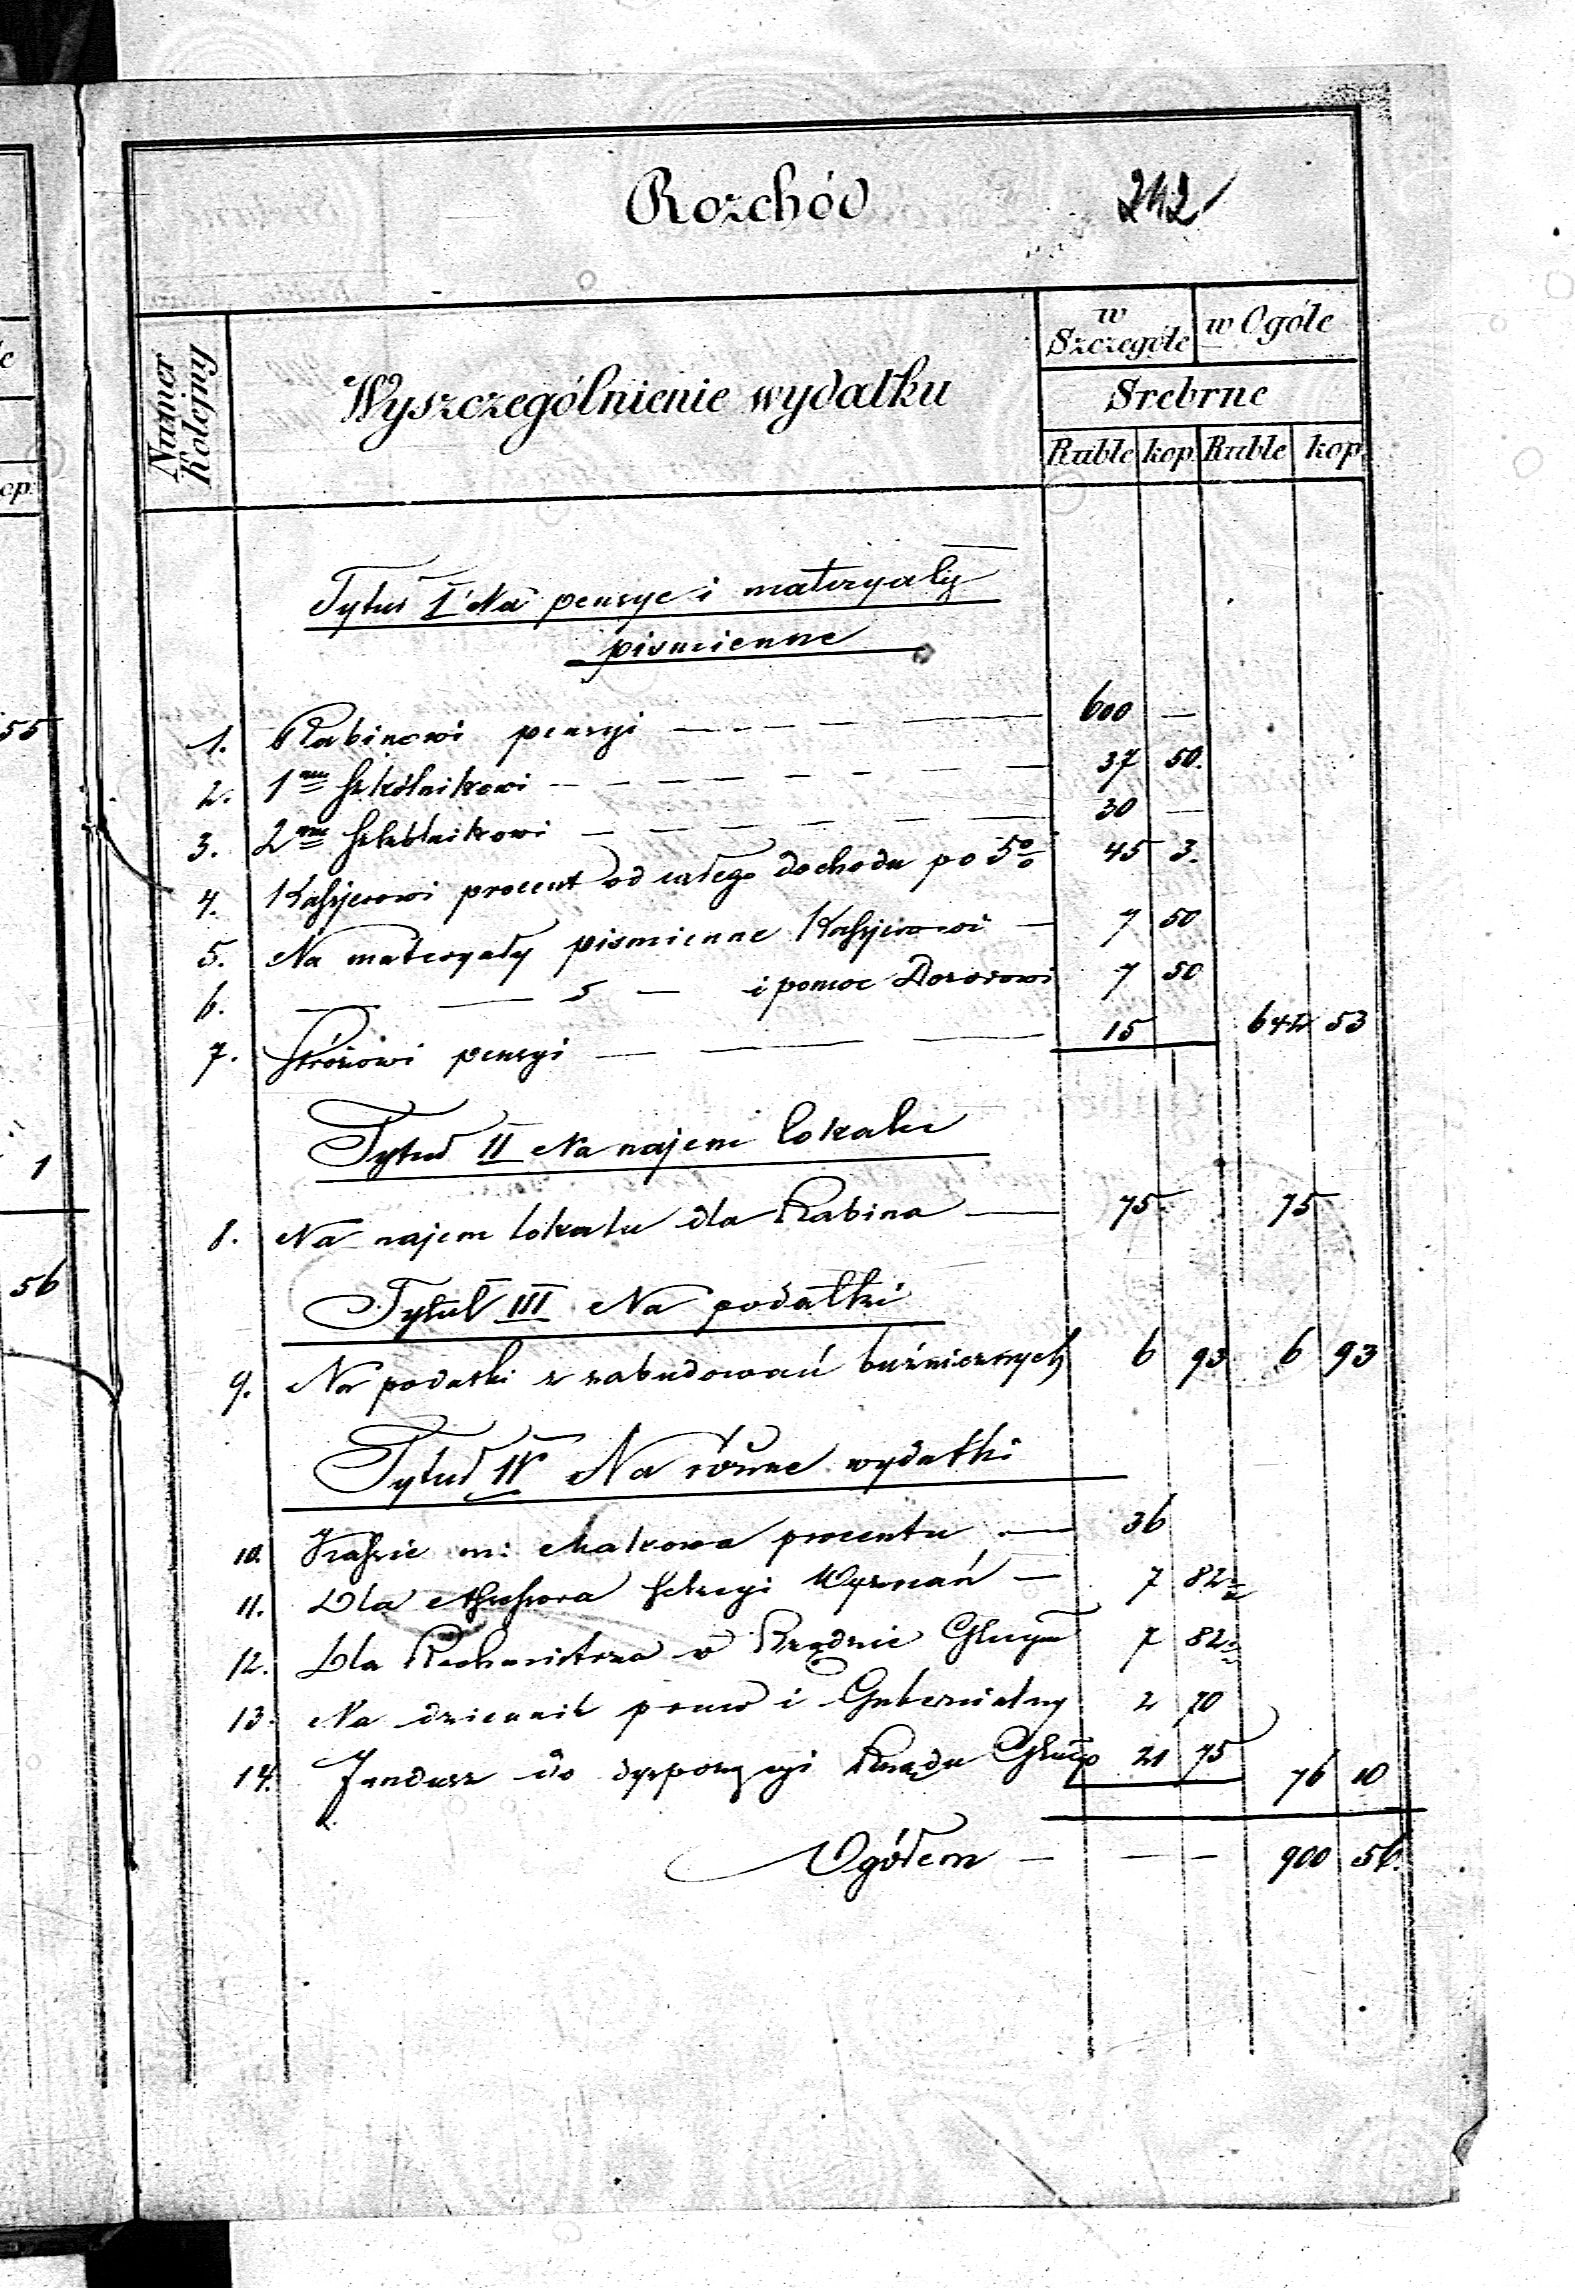 Rozchód 242
Numer Kolejny
Wyszczególnienie wydatku
w Szczególe
w Ogóle
Srebrne
Ruble kop. Ruble kop.
Tytuł I Na pensye i materyały
piśmienne
1. Rabinowi pensyi — — — 600 —
2. 1mu Szkólnikowi — — — 37 50.
3. 2mu Szkólnikowi — — — 30 —
4. Kassyerowi procent od całego dochodu po 5% 45 3.
5. Na materyały piśmienne Kassyerowi — 7 50
6. — — — i pomoc Dozorowi 7 50
7. Stróżowi pensyi — — — 15 742 53
Tytuł II Na najem lokalu
8. Na najem lokalu dla Rabina — 75 75
Tytuł III Na podatki
9. Na podatki z zabudowań bużnicznych 6 93 6 93
Tytuł IV Na różne wydatki
10. Kassie m: Makowa procentu — 36
11. Dla Assessora Sekcyi Wyznań — 7 82½
12. Dla Rachmistrza w Rządzie Gbuym 7 82½
13. Na dziennik praw i Gubernialny 2 70
14. Fundusz do dyspozycyi Rządu Gbugo 21 75 76 10
Ogółem — — — 900 56.
55
1
56